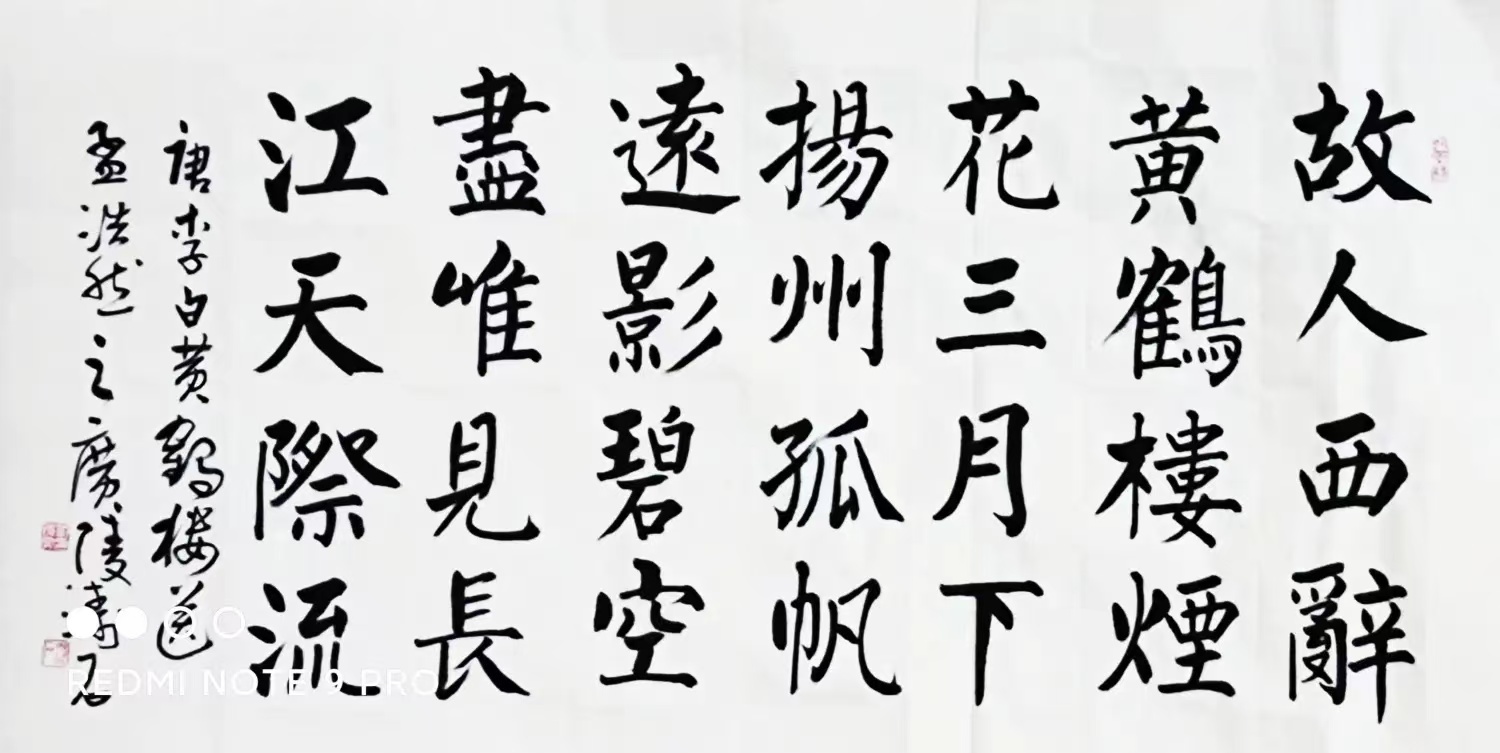 故人西辭
黃鶴樓煙
花三月下
揚州孤帆
遠影碧空
盡唯見長
江天際流
唐李白黄鹤楼送
孟浩然之广陵清石
REDMI NOTE 9 PRO